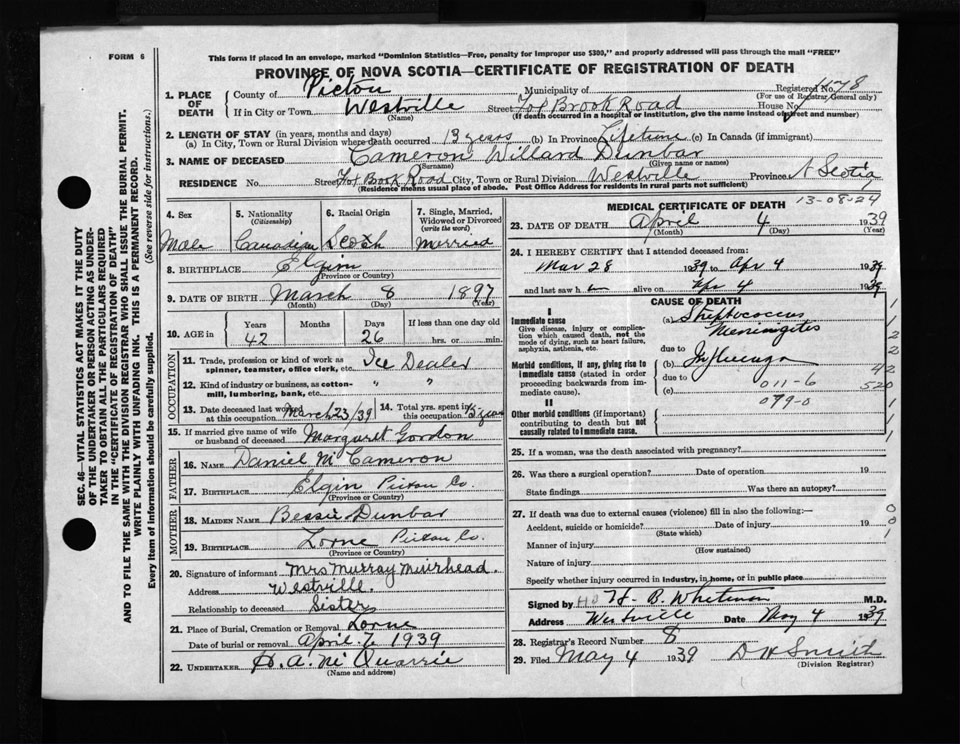 FORM 6
This form if placed in an envelope, marked "Dominion Statistics—Free, penalty for improper use $300," and properly addressed will pass through the mail "FREE"
PROVINCE OF NOVA SCOTIA—CERTIFICATE OF REGISTRATION OF DEATH
1. PLACE OF DEATH County of Pictou Municipality of Registered No. 478
(For use of Registrar General only)
If in City or Town Westville Street Fox Brook Road House No.
(Name) (If death occurred in a hospital or institution, give the name instead of street and number)
2. LENGTH OF STAY (in years, months and days)
(a) In City, Town or Rural Division where death occurred 13 years (b) In Province Lifetime (c) In Canada (if immigrant)
3. NAME OF DECEASED Cameron Willard Dunbar
(Surname) (Given name or names)
RESIDENCE No. Street Fox Brook Road City, Town or Rural Division Westville Province N Scotia
(Residence means usual place of abode. Post Office Address for residents in rural parts not sufficient)
4. Sex Male
5. Nationality (Citizenship) Canadian
6. Racial Origin Scotch
7. Single, Married, Widowed or Divorced (write the word) Married
8. BIRTHPLACE Elgin
(Province or Country)
9. DATE OF BIRTH March 8 1897
(Month) (Day) (Year)
10. AGE in Years Months Days If less than one day old
42 26 hrs. or min.
OCCUPATION
11. Trade, profession or kind of work as spinner, teamster, office clerk, etc. Ice Dealer
12. Kind of industry or business, as cotton-mill, lumbering, bank, etc. " "
13. Date deceased last worked at this occupation March 23/39
14. Total yrs. spent in this occupation years
15. If married give name of wife or husband of deceased Margaret Gordon
FATHER
16. NAME Daniel M Cameron
17. BIRTHPLACE Elgin Pictou Co.
(Province or Country)
MOTHER
18. MAIDEN NAME Bessie Dunbar
19. BIRTHPLACE Lorne Pictou Co.
(Province or Country)
20. Signature of informant Mrs Murray Muirhead.
Address Westville
Relationship to deceased Sister
21. Place of Burial, Cremation or Removal Lorne
Date of burial or removal April 7, 1939
22. UNDERTAKER H. A. McQuarrie
(Name and address)
MEDICAL CERTIFICATE OF DEATH
13-08-24
23. DATE OF DEATH April 4 1939
(Month) (Day) (Year)
24. I HEREBY CERTIFY that I attended deceased from:
Mar 28 1939 to Apr 4 1939
and last saw h im alive on Apr 4 1939
CAUSE OF DEATH
I
Immediate cause (a) Streptococcus
Give disease, injury or complication which caused death, not the mode of dying, such as heart failure, asphyxia, asthenia, etc. Meningitis
due to
Morbid conditions, if any, giving rise to immediate cause (stated in order proceeding backwards from immediate). (b) Influenza
due to 011-6
(c)
079-0
II
Other morbid conditions (if important) contributing to death but not causally related to immediate cause.
1
1
2
2
42
520
1
1
1
25. If a woman, was the death associated with pregnancy?
26. Was there a surgical operation? Date of operation 19
State findings Was there an autopsy?
27. If death was due to external causes (violence) fill in also the following:—
Accident, suicide or homicide? Date of injury 19
(State which)
Manner of injury
(How sustained)
Nature of injury
Specify whether injury occurred in industry, in home, or in public place
0
0
1
Signed by H. B. Whitman M.D.
Address Westville Date May 4 1939
28. Registrar's Record Number 8
29. Filed May 4 1939 D H Smith
(Division Registrar)
SEC. 46—VITAL STATISTICS ACT MAKES IT THE DUTY
OF THE UNDERTAKER OR PERSON ACTING AS UNDER-
TAKER TO OBTAIN ALL THE PARTICULARS REQUIRED
IN THE "CERTIFICATE OF REGISTRATION OF DEATH"
AND TO FILE THE SAME WITH THE DIVISION REGISTRAR WHO SHALL ISSUE THE BURIAL PERMIT.
WRITE PLAINLY WITH UNFADING INK. THIS IS A PERMANENT RECORD.
Every item of information should be carefully supplied. (See reverse side for instructions.)